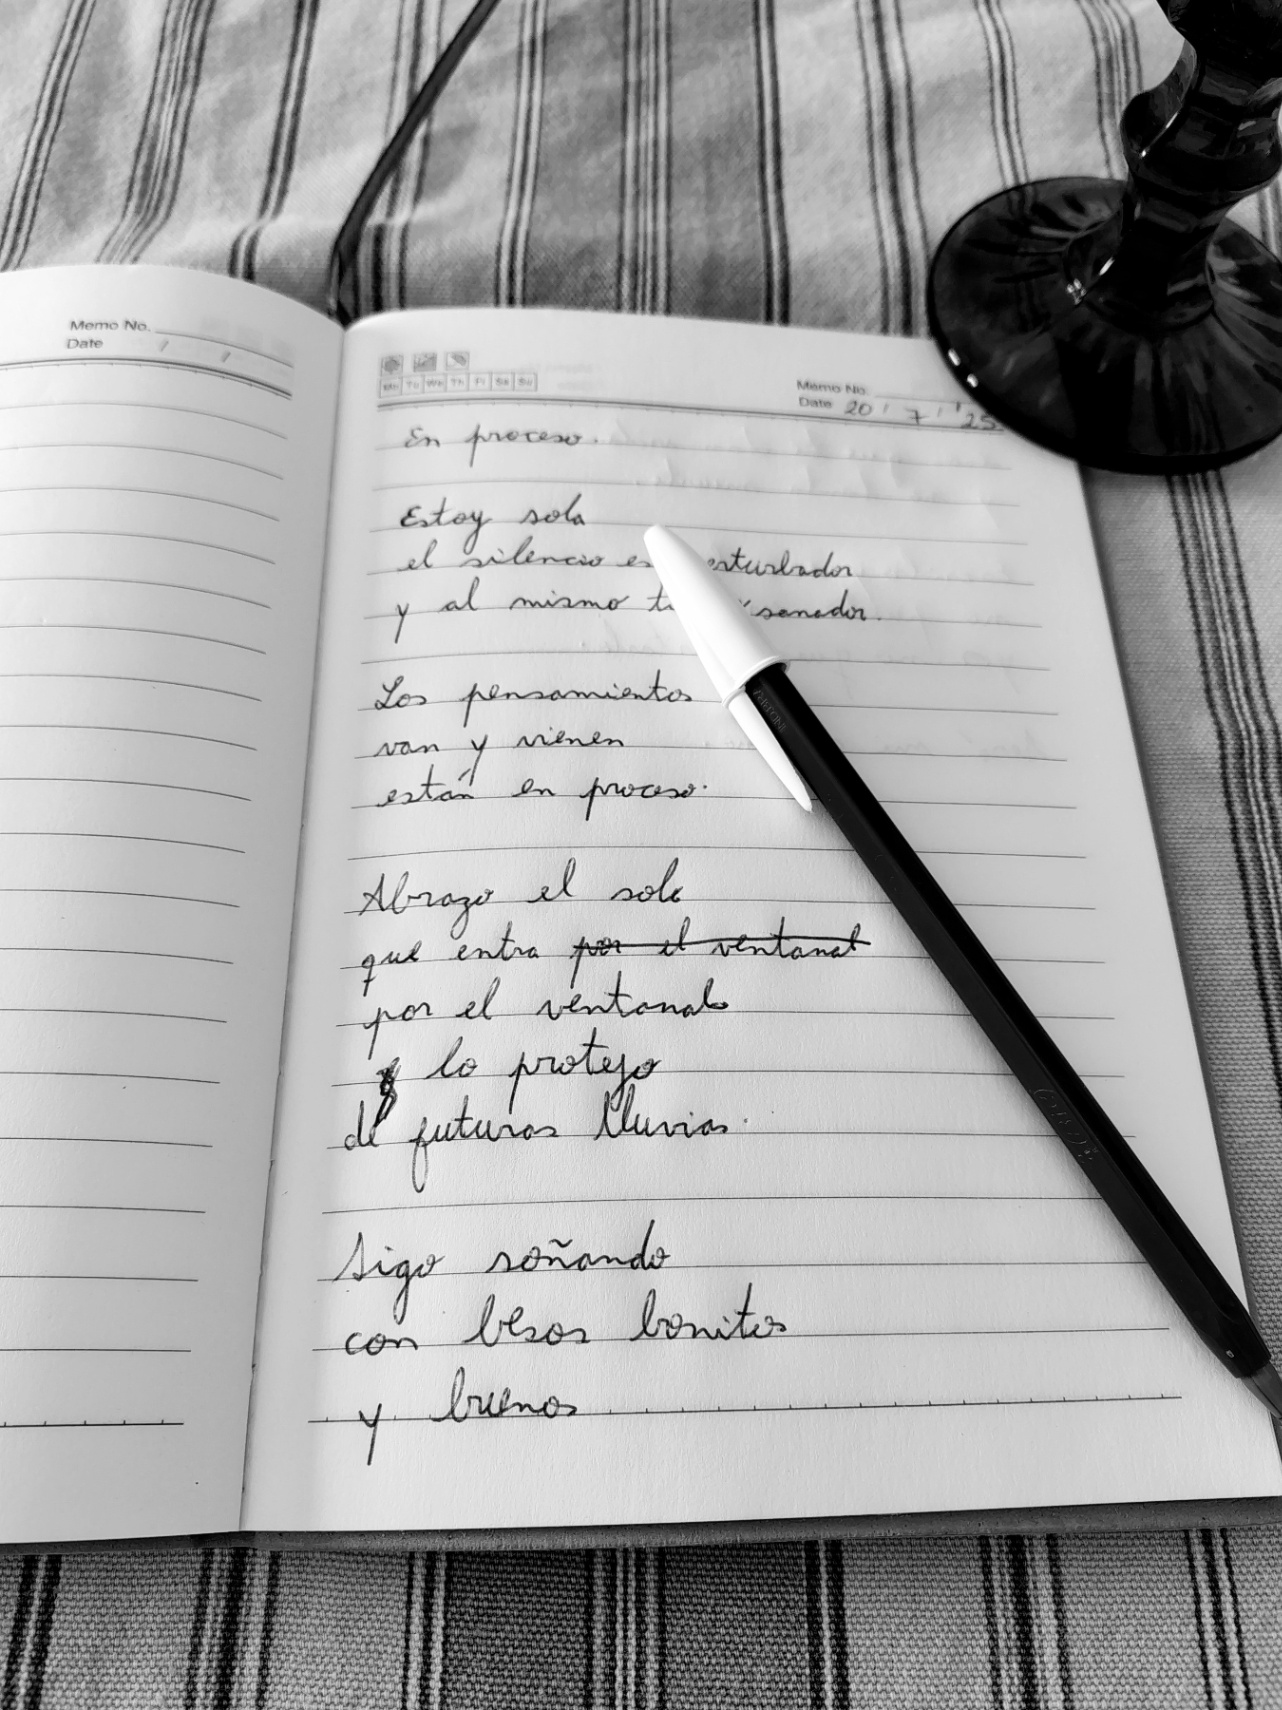 Memo No.
Date / /
Mo Tu We Th Fr Sa Su
Memo No.
Date 20 / 7 / '25
En proceso.
Estoy sola
el silencio
y al mismo sanador.
Los pensamientos
van y vienen
están en proceso.
Abrazo el sol
que entra por el ventanal
por el ventanal
y lo protejo
de futuras lluvias.
Sigo soñando
con besos bonitos
y buenos